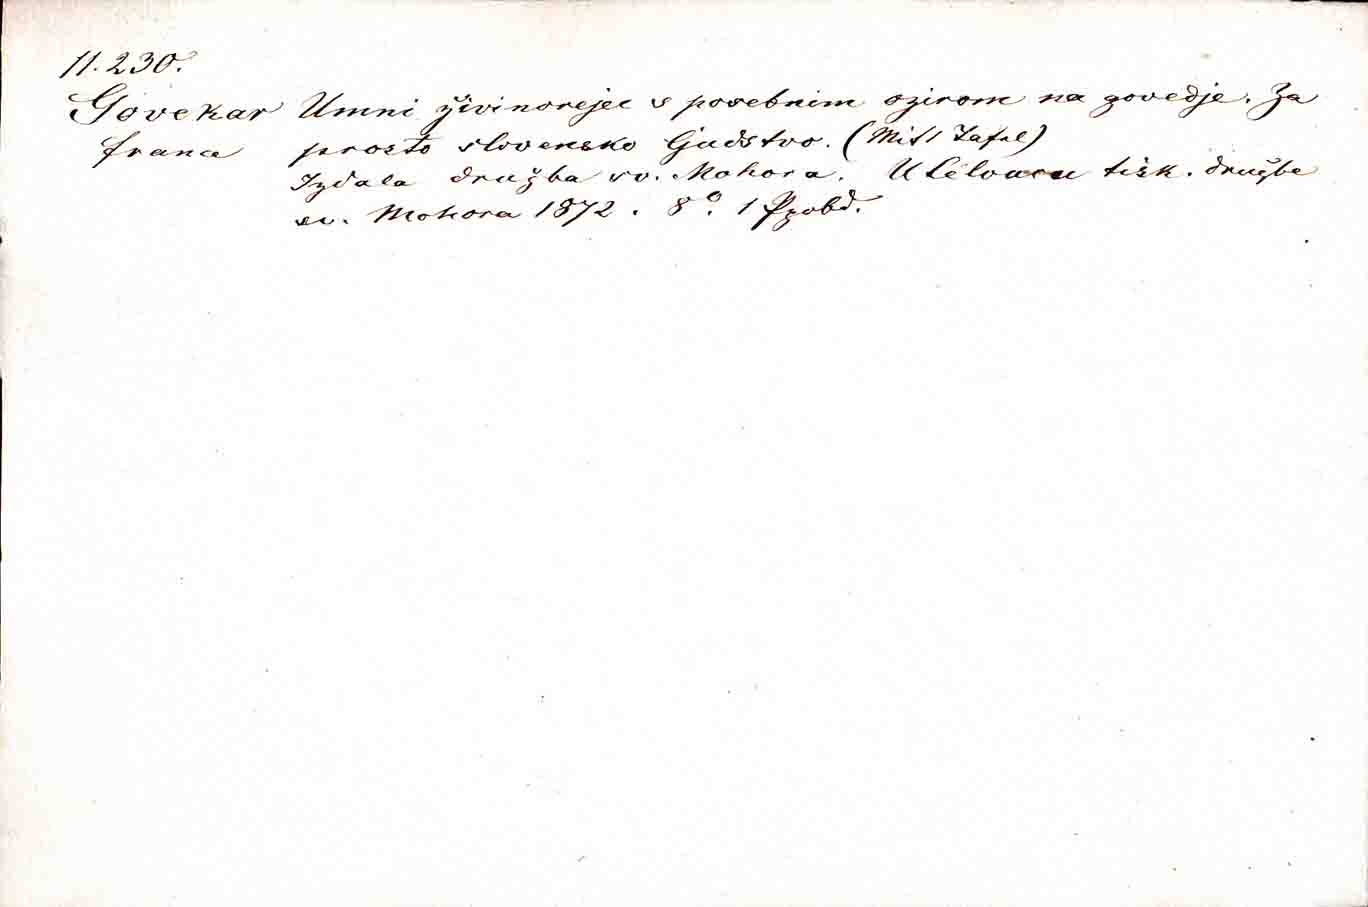 11.230.
Govekar Umni živinorejec s posebnim ozirom na govedje. Za
Franc prosto slovensko ljudstvo. (Mit 1 Tafel)
Izdala družba sv. Mohora. U Celovcu tisk. družbe
sv. Mohora 1872. 8°. 1 Ppbd.